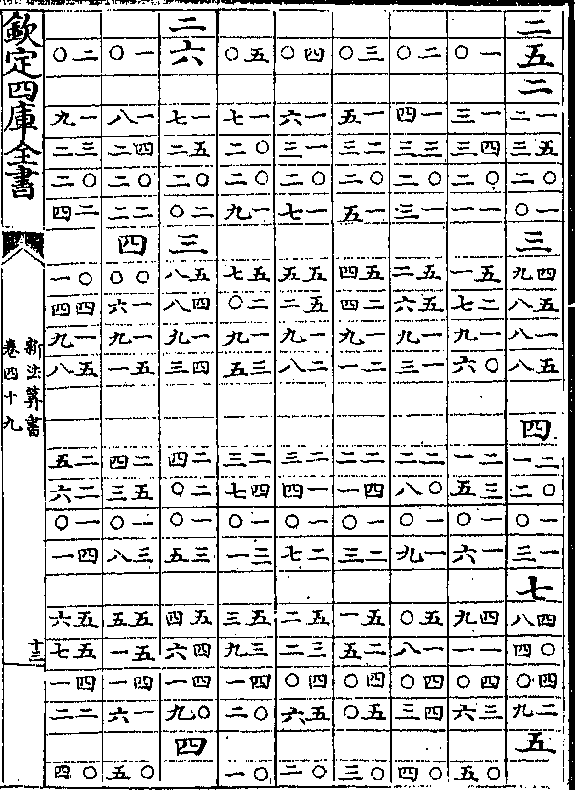 二五二 一二 五三 〇二 一〇 三 四九 五八 一八 五八 四 二一 〇二 一〇 一三 七 四八 〇四 四〇 二九 五
一〇 一三 四三 〇二 一一 五一 二七 一九 〇六 二一 三五 一〇 一六 四九 一一 四〇 三六 〇五
二〇 一四 三三 〇二 一三 五二 五六 一九 一三 二二 〇八 一〇 一九 五〇 一八 四〇 四三 〇四
三〇 一五 二三 〇二 一五 五四 二四 一九 二一 二二 四一 一〇 二三 五一 二五 四〇 五〇 〇三
四〇 一六 一三 〇二 一七 五五 五二 一九 二八 二三 一四 一〇 二七 五二 三二 四〇 五六 〇二
五〇 一七 〇二 〇二 一九 五七 二〇 一九 三五 二三 四七 一〇 三一 五三 三九 四一 〇二 〇一
二六 一七 五二 〇二 二〇 三 五八 四八 一九 四三 二四 二〇 一〇 三五 五四 四六 四一 〇九 四
一〇 一八 四二 〇二 二二 四 〇〇 一六 一九 五一 二四 五三 一〇 三八 五五 五一 四一 一六 〇五
二〇 一九 三二 〇二 二四 〇一 四四 一九 五八 二五 二六 一〇 四一 五六 五七 四一 二二 〇四
欽定四庫全書
新法算書
卷四十九
十三